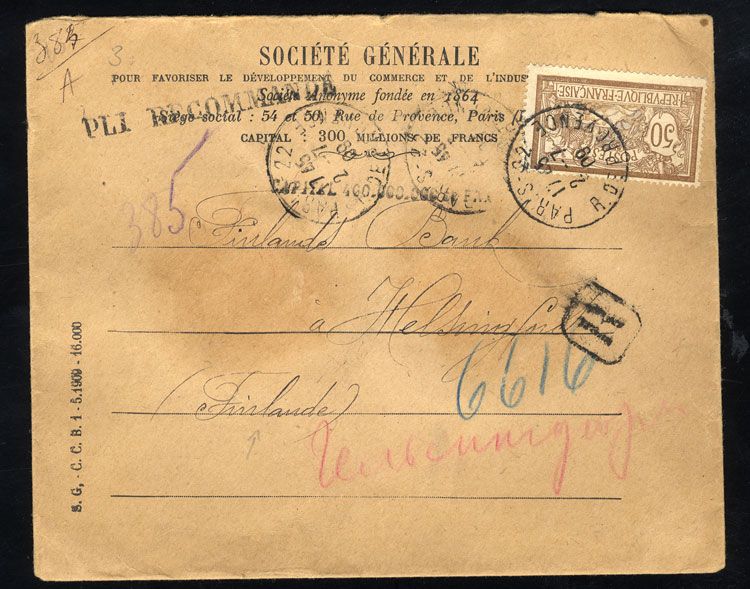 385
A
3
SOCIÉTÉ GÉNÉRALE
POUR FAVORISER LE DÉVELOPPEMENT DU COMMERCE ET DE L'INDUS
Société Anonyme fondée en 1864
PLI RECOMMANDÉ
Siège social : 54 et 50, Rue de Provence, Paris
CAPITAL : 300 MILLIONS DE FRANCS
CAPITAL 400.000.000
REPUBLIQUE FRANÇAISE
POSTES
50
PARIS-22
R. DE PROVENCE
17 45
2 - 7
09
385
Finlands Bank
à Helsingfors
R
6616
(Finlande)
Гельсингфор.
S. G. - C. C. B. 1 - 5.1909 - 16.000